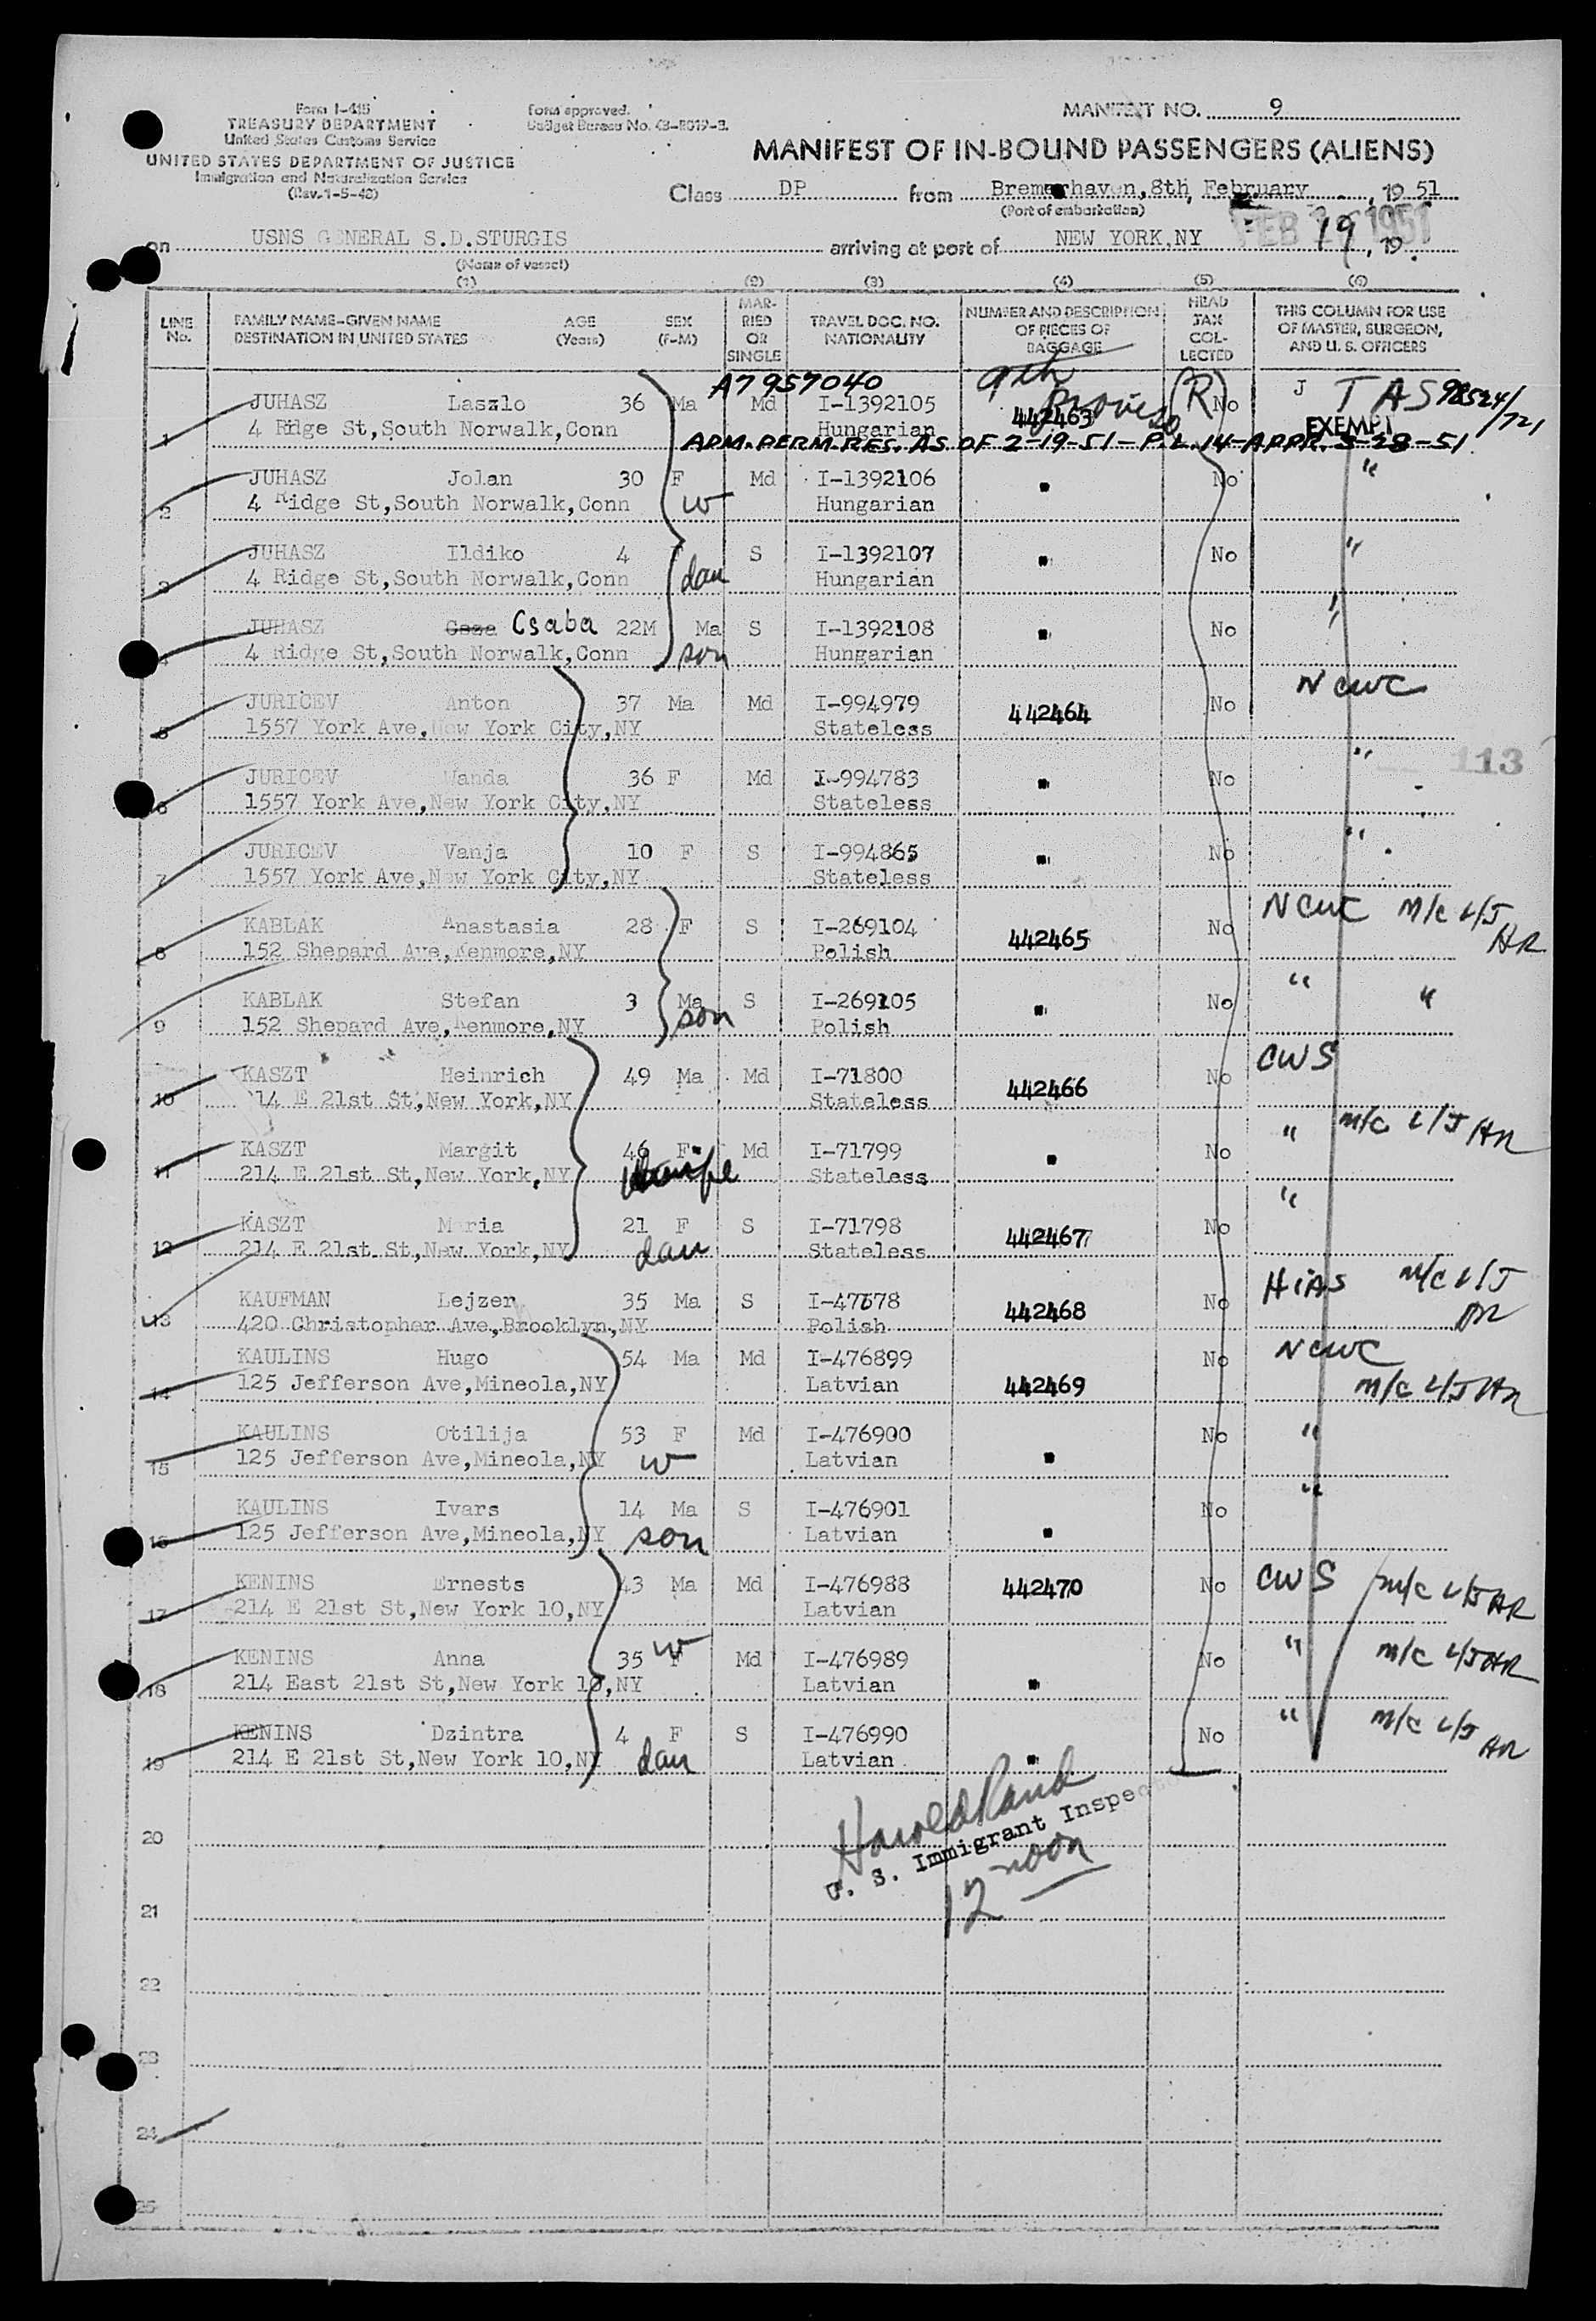 Form I-415
TREASURY DEPARTMENT
United States Customs Service
UNITED STATES DEPARTMENT OF JUSTICE
Immigration and Naturalization Service
(Rev. 1-5-48)
Form approved.
Budget Bureau No. 43-R019-3.
MANIFEST NO. 9
MANIFEST OF IN-BOUND PASSENGERS (ALIENS)
Class DP from Bremerhaven, 8th, February, 1951
(Port of embarkation)
on USNS GENERAL S.D.STURGIS arriving at port of NEW YORK,NY FEB 19 1951, 19
(Name of vessel)
(1) (2) (3) (4) (5) (6)
LINE No. FAMILY NAME-GIVEN NAME DESTINATION IN UNITED STATES AGE (Years) SEX (F-M) MARRIED OR SINGLE TRAVEL DOC. NO. NATIONALITY NUMBER AND DESCRIPTION OF PIECES OF BAGGAGE HEAD TAX COLLECTED THIS COLUMN FOR USE OF MASTER, SURGEON, AND U. S. OFFICERS
A7957040 9th Proviso (R) J T AS 98524/721
JUHASZ Laszlo 36 Ma Md I-1392105 442463 No EXEMPT
1 4 Ridge St,South Norwalk,Conn Hungarian
ADM. PERM. RES. AS OF 2-19-51-P.L. 14-APPR. 3-28-51
JUHASZ Jolan 30 F Md I-1392106 " No "
2 4 Ridge St,South Norwalk,Conn w Hungarian
JUHASZ Ildiko 4 F S I-1392107 " No "
3 4 Ridge St,South Norwalk,Conn dau Hungarian
JUHASZ Csaba 22M Ma S I-1392108 " No "
4 4 Ridge St,South Norwalk,Conn son Hungarian
JURICEV Anton 37 Ma Md I-994979 442464 No NCWC
5 1557 York Ave,New York City,NY Stateless
113
JURICEV Wanda 36 F Md I-994783 " No "
6 1557 York Ave,New York City,NY Stateless
JURICEV Vanja 10 F S I-994865 " No "
7 1557 York Ave,New York City,NY Stateless
KABLAK Anastasia 28 F S I-269104 442465 No NCWC M/C L/J HR
8 152 Shepard Ave,Kenmore,NY Polish
KABLAK Stefan 3 Ma S I-269105 " No " "
9 152 Shepard Ave,Kenmore,NY son Polish
KASZT Heinrich 49 Ma Md I-71800 442466 No CWS
10 214 E 21st St,New York,NY Stateless
KASZT Margit 46 F Md I-71799 " No " M/C L/J HR
11 214 E 21st St,New York,NY wife Stateless
KASZT Maria 21 F S I-71798 442467 No "
12 214 E 21st St,New York,NY dau Stateless
KAUFMAN Lejzer 35 Ma S 442468 No HIAS M/C L/J HR
13 420 Christopher Ave,Brooklyn,NY Polish
KAULINS Hugo 54 Ma Md I-476899 No NCWC
14 125 Jefferson Ave,Mineola,NY Latvian 442469 M/C L/J HR
KAULINS Otilija 53 F Md I-476900 No "
15 125 Jefferson Ave,Mineola,NY w Latvian "
KAULINS Ivars 14 Ma S I-476901 No "
16 125 Jefferson Ave,Mineola,NY son Latvian "
KENINS Ernests 43 Ma Md I-476988 442470 No CWS M/C L/J HR
17 214 E 21st St,New York 10,NY Latvian
KENINS Anna 35 F w Md I-476989 No " M/C L/J HR
18 214 East 21st St,New York 10,NY Latvian "
KENINS Dzintra 4 F S I-476990 No " M/C L/J HR
19 214 E 21st St,New York 10,NY dau Latvian "
Harold Rand
U. S. Immigrant Inspector
12 noon
20
21
22
23
24
25